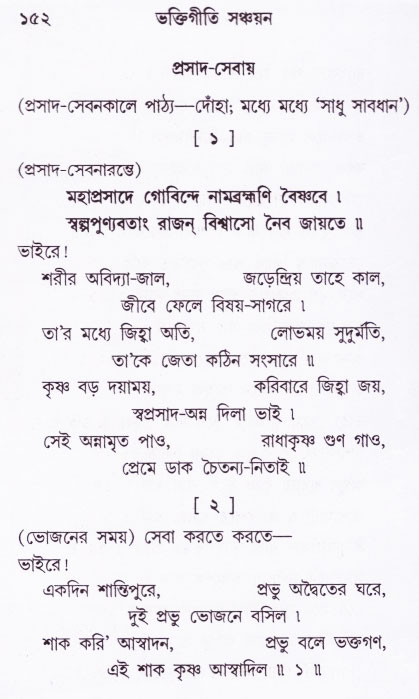 ১৫২ ভক্তিগীতি সঞ্চয়ন
প্রসাদ-সেবায়
(প্রসাদ-সেবনকালে পাঠ্য—দোঁহা; মধ্যে মধ্যে ‘সাধু সাবধান’)
[ ১ ]
(প্রসাদ-সেবনারম্ভে)
মহাপ্রসাদে গোবিন্দে নামব্রহ্মণি বৈষ্ণবে ।
স্বল্পপুণ্যবতাং রাজন্ বিশ্বাসো নৈব জায়তে ॥
ভাইরে!
শরীর অবিদ্যা-জাল, জড়েন্দ্রিয় তাহে কাল,
জীবে ফেলে বিষয়-সাগরে ।
তা'র মধ্যে জিহ্বা অতি, লোভময় সুদুর্মতি,
তা'কে জেতা কঠিন সংসারে ॥
কৃষ্ণ বড় দয়াময়, করিবারে জিহ্বা জয়,
স্বপ্রসাদ-অন্ন দিলা ভাই ।
সেই অন্নামৃত পাও, রাধাকৃষ্ণ গুণ গাও,
প্রেমে ডাক চৈতন্য-নিতাই ॥
[ ২ ]
(ভোজনের সময়) সেবা করতে করতে—
ভাইরে!
একদিন শান্তিপুরে, প্রভু অদ্বৈতের ঘরে,
দুই প্রভু ভোজনে বসিল ।
শাক করি' আস্বাদন, প্রভু বলে ভক্তগণ,
এই শাক কৃষ্ণ আস্বাদিল ॥ ১ ॥